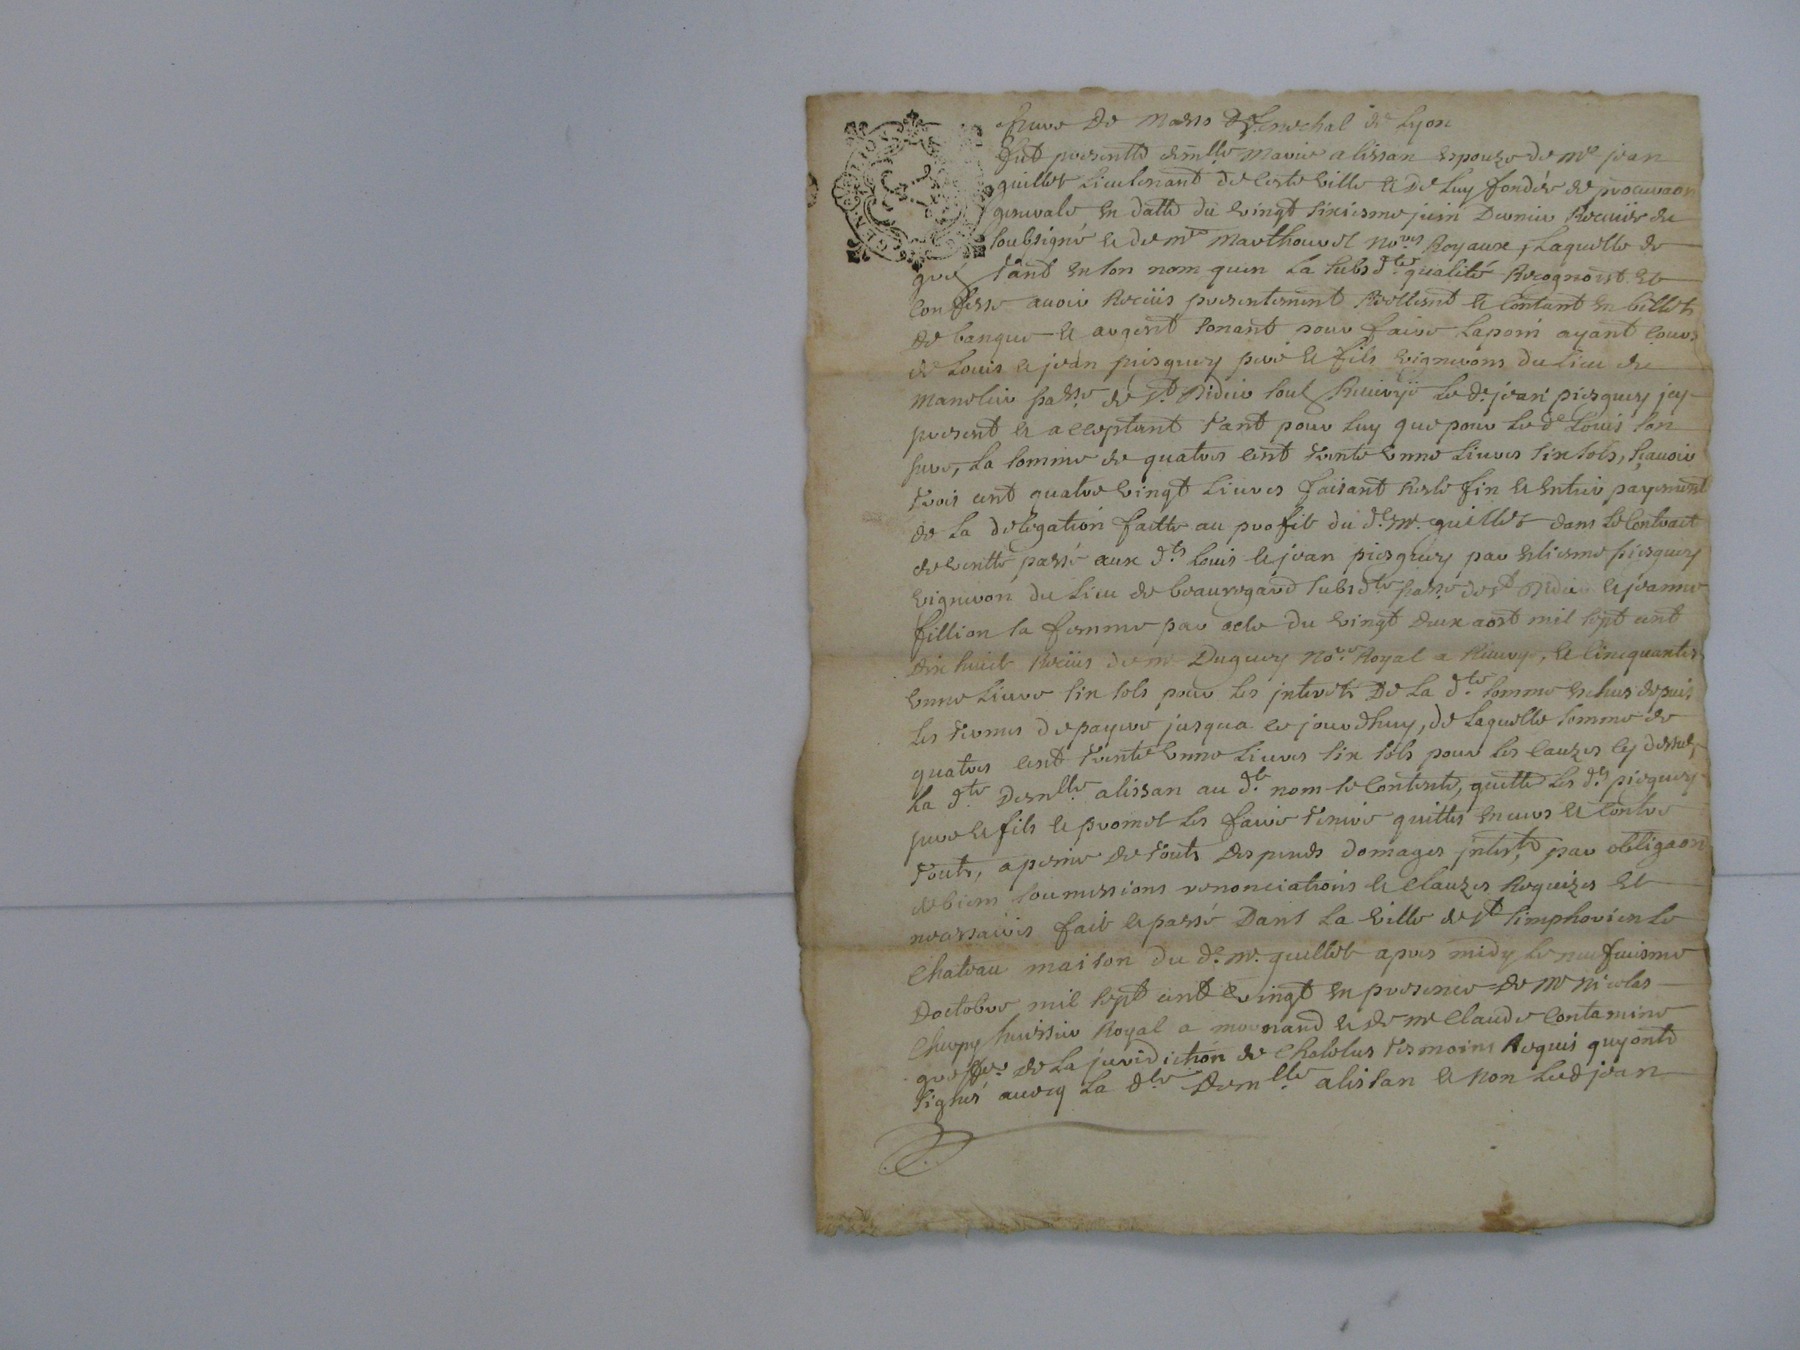 de Lyon
fut presentte demlle Marie alissan espouze de me jean
quillet Lieutenant de ceste ville et de luy fondée de procuraon
generale en datte du vingt sixiesme juin dernier Receüe du
soubsigné et de me Marthouret nores Royaux, Laquelle de
gré tant en son nom quen La susdte qualité Recognoist et
Confesse auoir Receüs presentement Reellemt et Contant en billets
de banque et argent sonant pour faire lapoin ayant cours
de Louis et jean piesquey pere et fils vignerons du Lieu de
parse de st Didier soubs Riuerÿe Led. jean piesquey jcy
present et acceptant tant pour Luy que pour Led Louis son
pere, La somme de quatres cent trente vnne Liures six sols, sçauoir
trois cent quatre vingt Liures faisant reste fin et entier payement
de La delegation faitte au profit du d. mr. quillet dans Le Contract
de ventte passé aux dts Louis et jean piesquey par estiesme piesquey
vigneron du Lieu de beauregard susdte parse de st Didier et jeanne
fillion sa femme par acte du vingt deux aost mil sept cent
dix huict Receüs de me Duguey nore Royal a Riuerye, et Cincquantes
vnne Liure six sols pour Les jnterets De La dte somme escheus depuis
Les termes de payre jusqua ce jourdhuy, de Laquelle somme de
quatres cent trente vnne Liures six sols pour Les causes cy dessus
La dte Demlle alissan au d. nom se Contente, quitte Les dts piesquey
pere et fils et promet Les faire tenire quittes enuers et Contre
touts, a peine de touts despends domages jnterts, par obligaon
de biens soumissions renonciations et Clauzes Requizes et
necessaires fait et passé Dans La ville de st simphorien Le
Chateau maison du d. mr. quillet apres midy Le neufuiesme
Doctobre mil sept cent vingt en presence de me nicolas
Cherpy huissier Royal a mornand et de me Claude Contamine
greffier de La juridiction de Chatelus tesmoins Requis quy onts
signés auecq La dte Demlle alissan et non Led jean